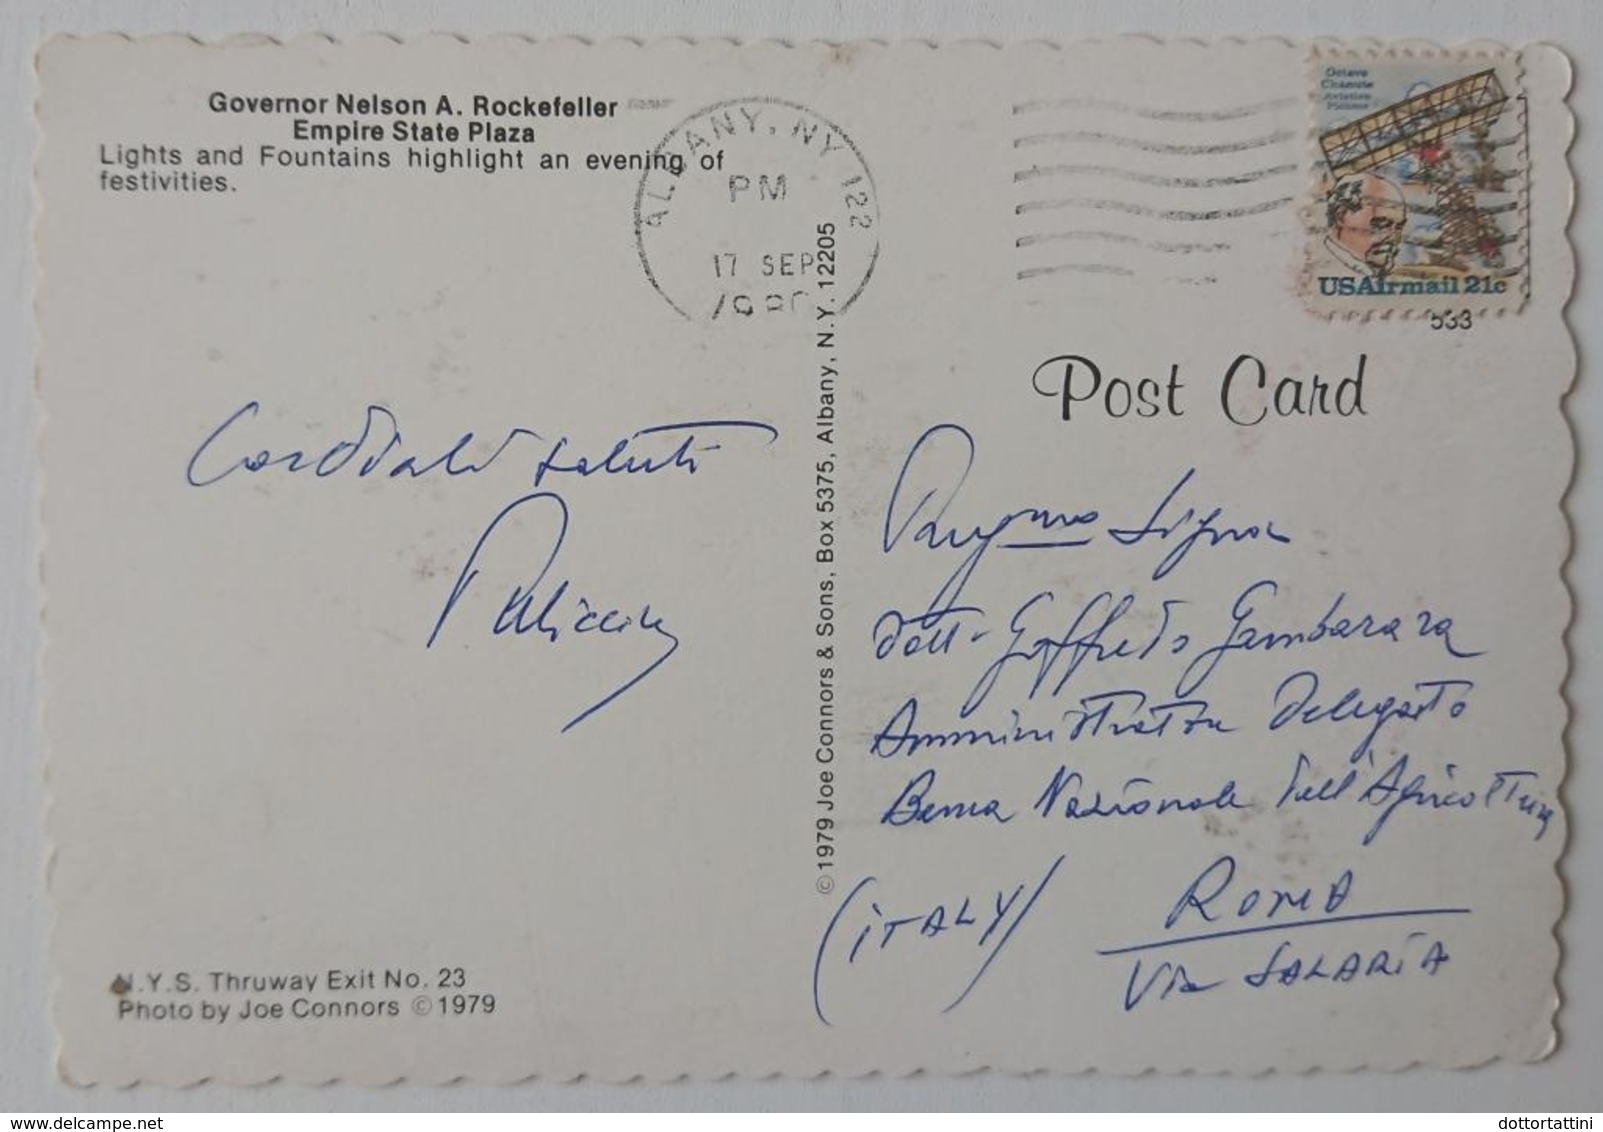 Governor Nelson A. Rockefeller
Empire State Plaza
Lights and Fountains highlight an evening of
festivities.
ALBANY, NY 122
PM
17 SEP
1980
Octave
Chanute
Aviation
Pioneer
USAirmail 21c
533
Post Card
Cordiali saluti
© 1979 Joe Connors & Sons, Box 5375, Albany, N.Y. 12205
Signor
Dott. Goffredo Gambarara
Amministratore Delegato
Banca Nazionale dell'Agricoltura
ROMA
(ITALY)
Via SALARIA
N.Y.S. Thruway Exit No. 23
Photo by Joe Connors © 1979
dottortattini